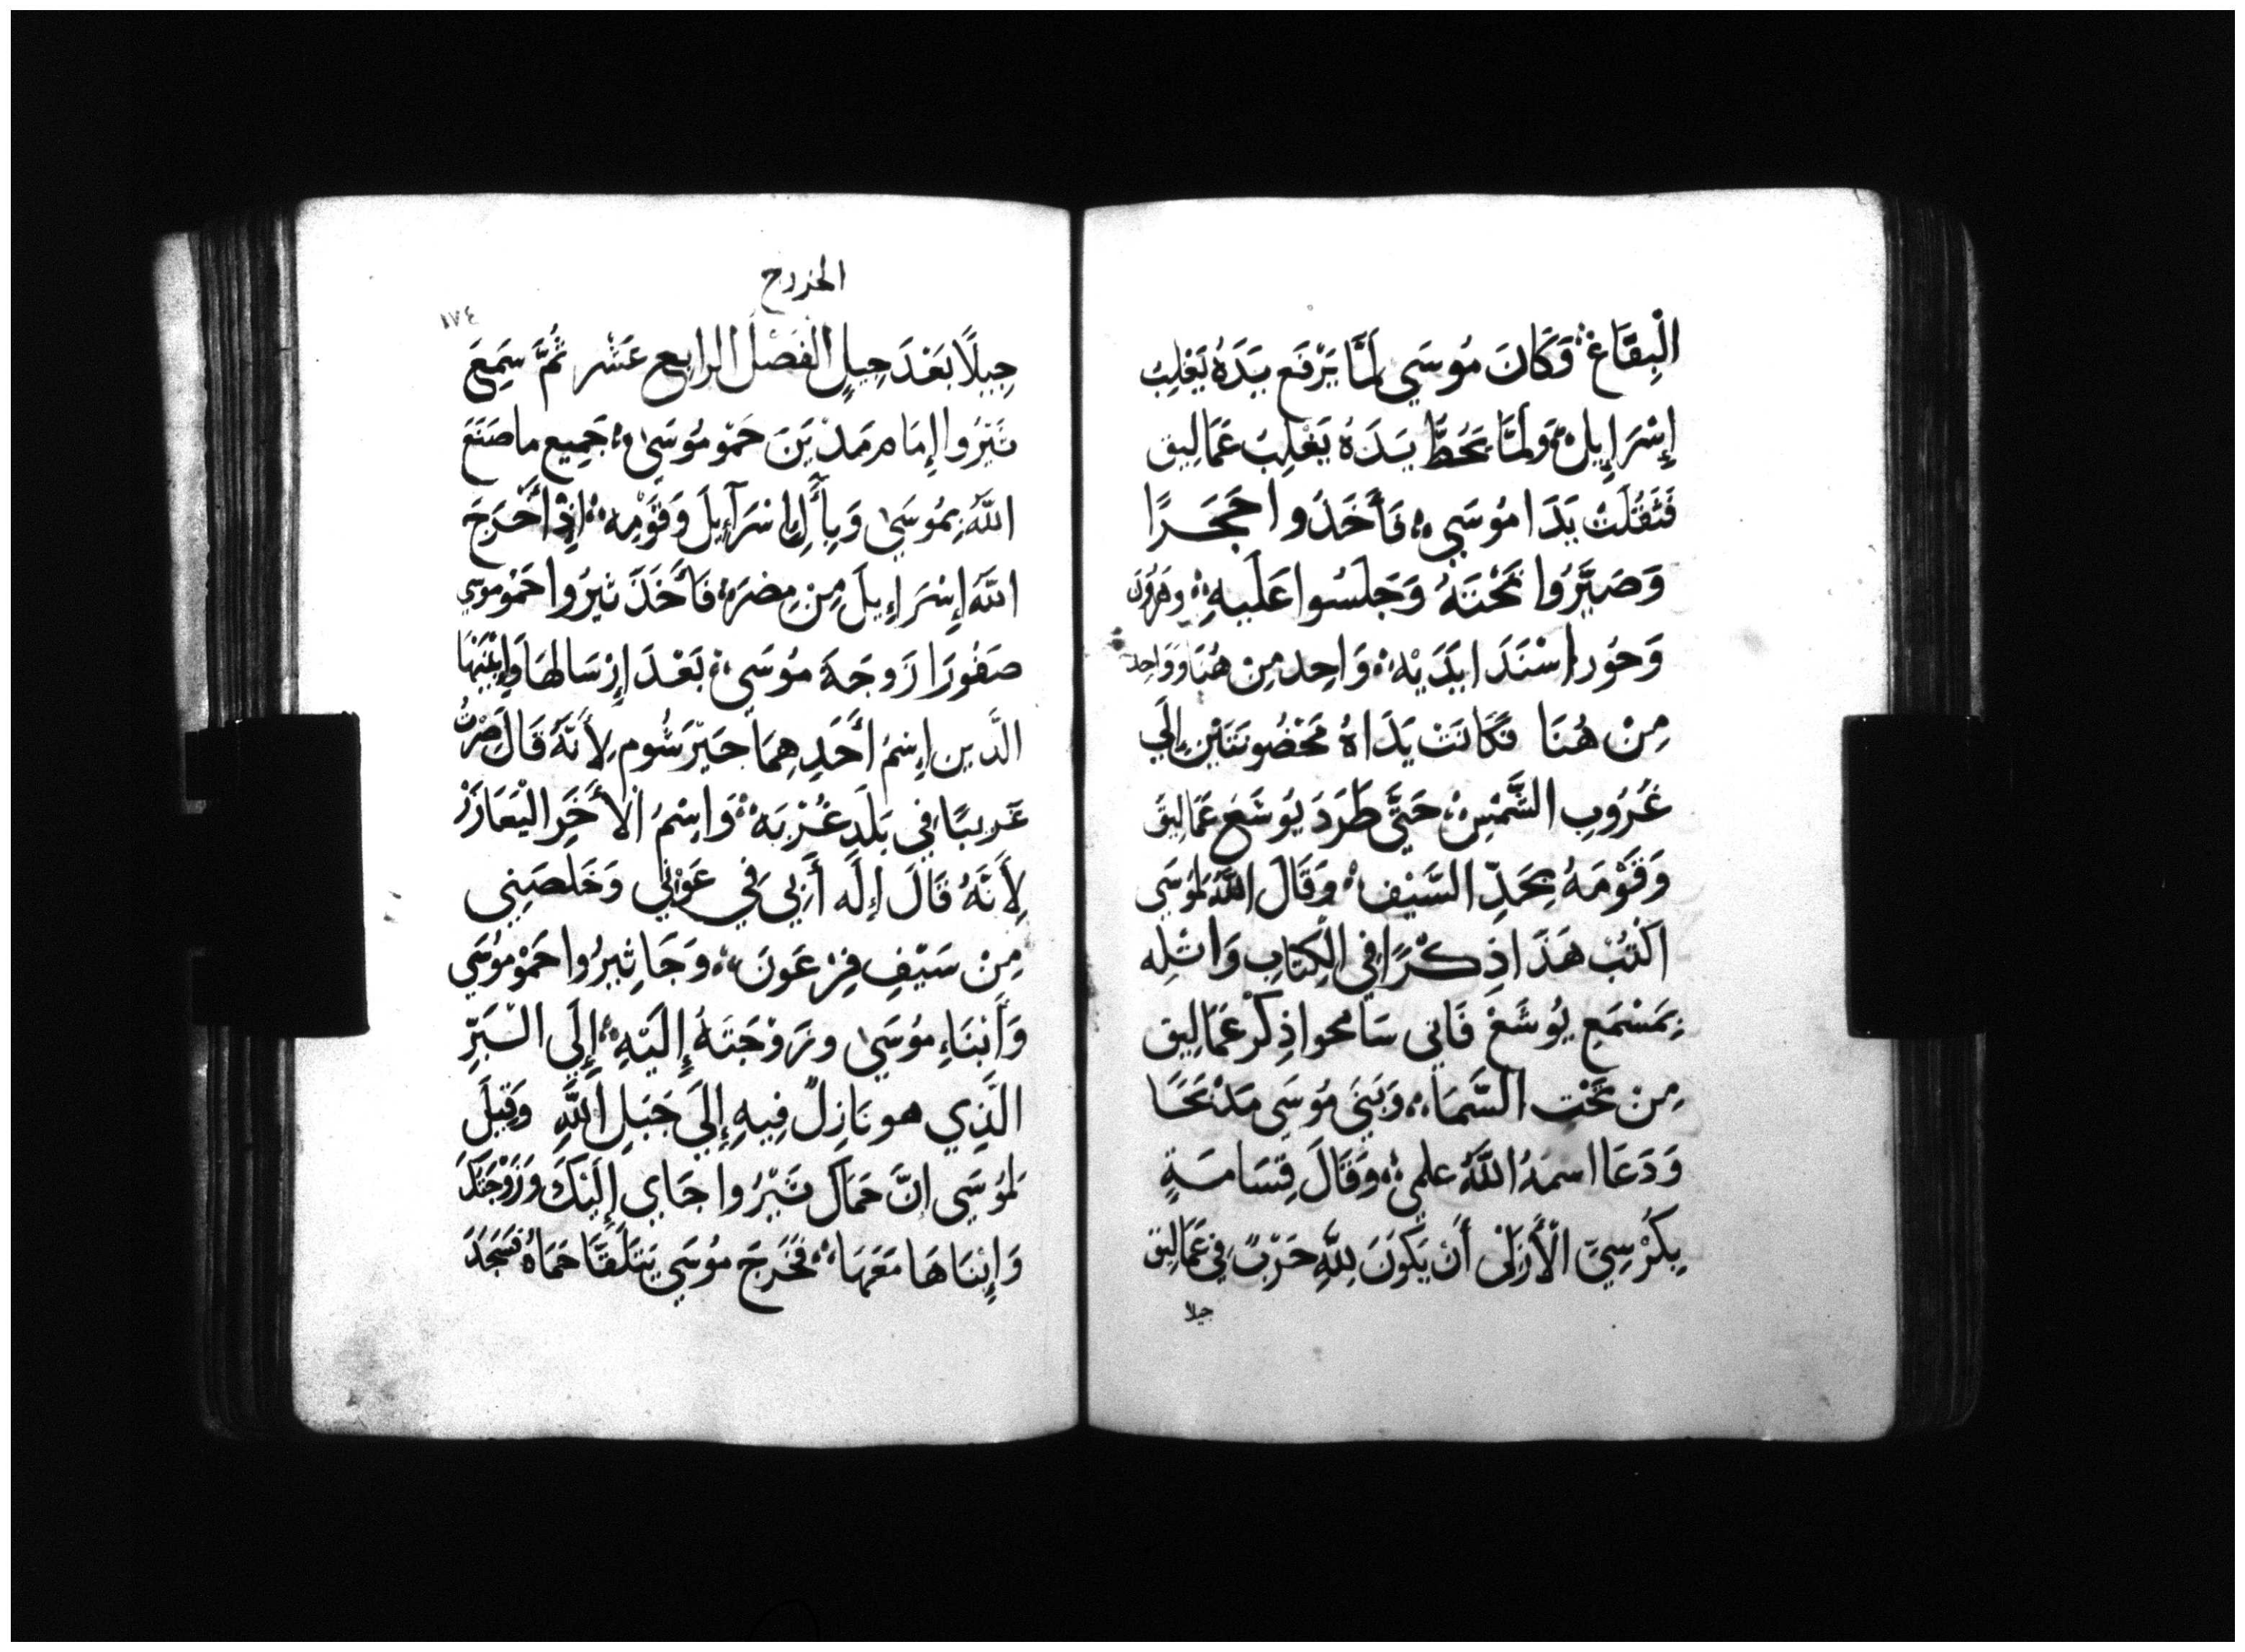 الْبِقَاعْ وَكَانَ مُوسَي لَمَّا يَرْفَع يَدَهُ يَغْلِبُ
إِسْرَإِيل وَلَمَّا يَحُطُّ يَدَهُ يَغْلِبُ عَمَالِيق
فَثَقُلَتْ يَدَا مُوسَي فَأَخَذُوا حَجَرًا
وَصَيَّرُوا تَحْتَهُ وَجَلَسُوا عَلَيهِ وهَرُون
وَحُور اسْنَدَا يَدَيْهِ وَاحِد مِن هُنَا وَوَاحِد
مِنْ هُنَا فَكَانَتْ يَدَاهُ مَحْضُونَتَيْنِ إِلَي
غُرُوبِ الشَّمْسِ حَتَّى طَرَدَ يُوشَعْ عَمَالِيقَ
وَقَوْمَهُ بِحَدِّ السَّيْف وَقَالَ اللَّهُ لِمُوسَي
اكْتُبْ هَذَا ذِكْرًا فِي الْكِتَابِ وَاتْلِه
بِمَسْمَعِ يُوشَعْ فَانى سَامحوا ذِكْرَ عَمَالِيق
مِنْ تَحْتِ السَّمَاء وَبَنَى مُوسَي مَدْبَحًا
وَدَعَا اسمَهُ اللَّهُ علمي وَقَالَ قِسَامَةٍ
بِكُرْسِيِّ الْأَزَلَى أَنْ يَكُونَ لِلَّهِ حَرْبٌ فِي عَمَالِيق
جيلا
الخروج
١٧٤
جِيلًا بَعْدَ جِيلٍ الفَصْلُ الرابِع عَشر ثُمَّ سَمِعَ
ثَيْرُوا إِمَام مَدْيَنَ حَمْو مُوسَى جَمِيع ما صَنَعَ
اللَّهُ بِمُوسَى وَبِأَل إِسْرَآءِيلَ وَقَوْمِه إِذْ أَخْرَجَ
اللَّهُ إِسْرَإِيلَ مِنْ مِصْرَ فَأَخَذَ ثيرُوا حَمُو موسي
صَفُورَا زَوجَة مُوسَي بَعْدَ إِرْسَالهَا وَإِبْنَيْهَا
الَّذين إِسْمُ أَحَدِهِمَا جَيْرَشُوم لِأَنَّهُ قَالَ صِرْتُ
غَرِيبًا فِي بَلَدِ غُرْبَه وَاسْمُ الْأَخَرِ الْيَعَازَرْ
لِأَنَّهُ قَالَ إِلَه أَبِي فِي عَوْنِي وَخَلصَنِي
مِنْ سَيْفِ فِرْعَونَ وَجَا ثِيرُوا حَمْو مُوسَي
وَأَبْنَاءِ مُوسَى وزَوْجَتَهُ إِلَيْهِ إِلَي الْبَرِّ
الَّذِي هو نَازِلٌ فِيهِ إِلَي جَبَلِ اللَّهِ وَقِيلَ
لِمُوسَي إِنَّ حَمَاكَ ثَيْرُوا جَاي إِلَيْكَ وَزَوْجَتَكَ
وَإِبْنَاهَا مَعَهَا فَخَرَجَ مُوسَي يَتَلَقَّا حَمَاهُ فَسَجَدَ